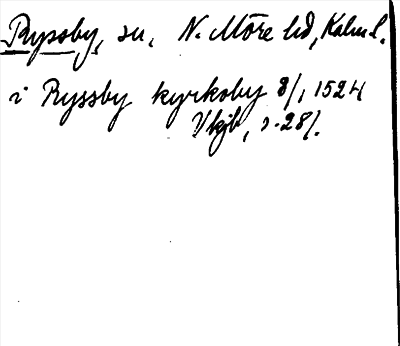 Ryssby, sn, N. Möre hd, Kalm. l.
i Ryssby kyrkoby 8/1 1524
Vkjb, s. 281.